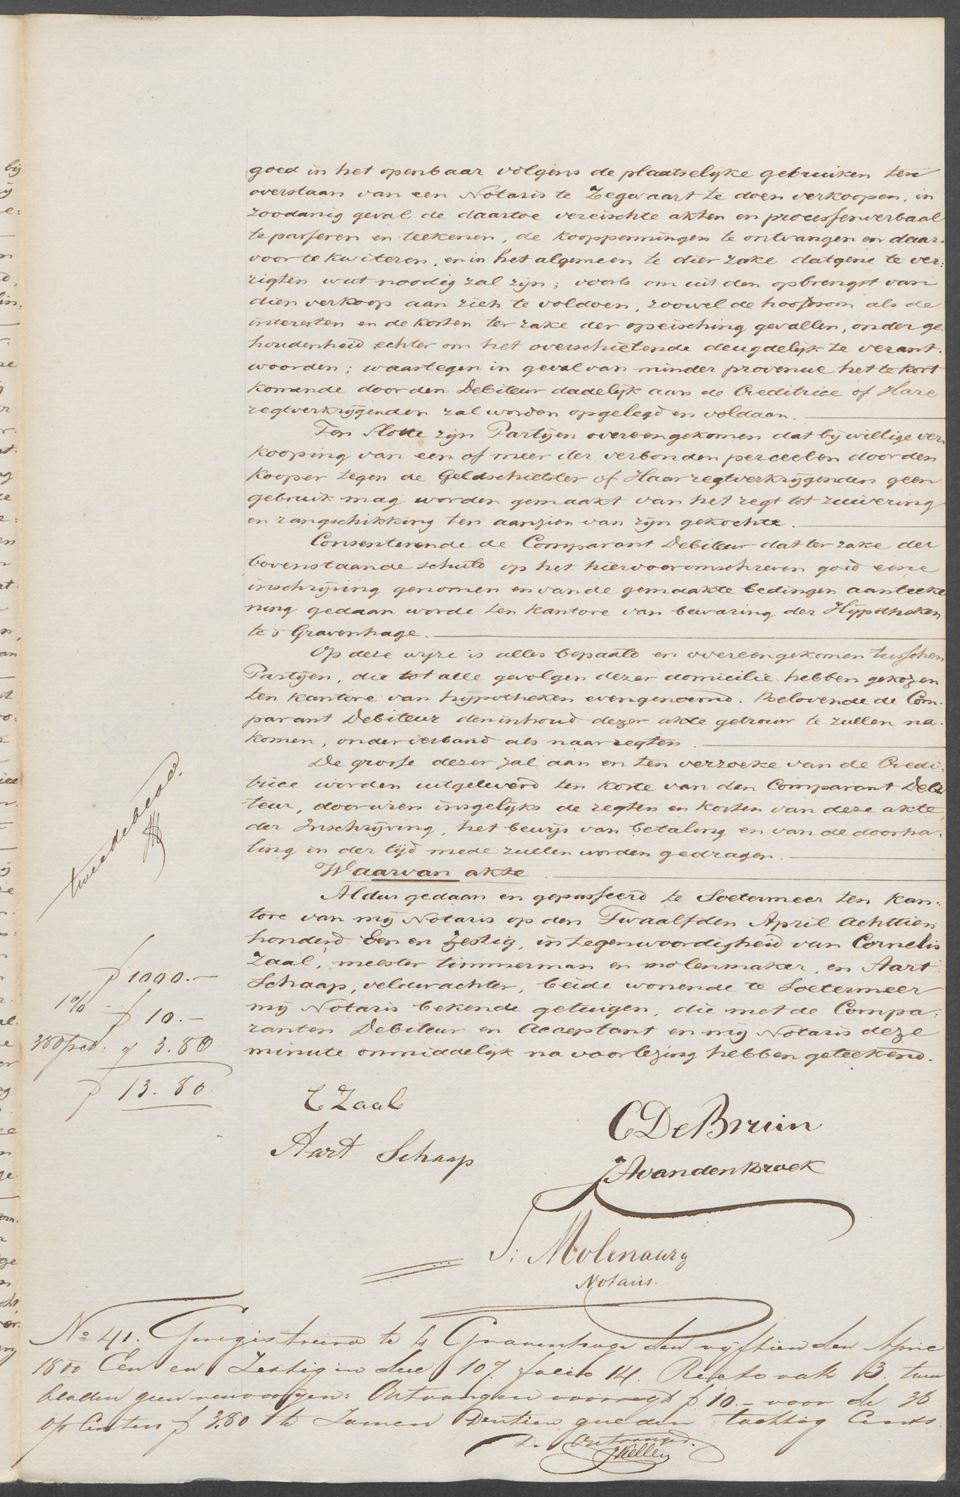 goed in het openbaar volgens de plaatselijke gebruiken ten
overstaan van een Notaris te Zegwaart te doen verkoopen, in
zoodanig geval de daartoe vereischte akten en processenverbaal
te parferen en teekenen, de kooppenningen te ontvangen en daar-
voor te kwiteren, en in het algemeen te dier zake datgene te ver-
rigten wat noodig zal zijn; voorts om uit den opbrengst van
dien verkoop aan zich te voldoen, zoowel de hoofdsom als de
interesten en de kosten ter zake der opeisching gevallen, onder ge-
houdenheid echter om het overschietende deugdelijk te verant-
woorden; waartegen in geval van minder provenue het te kort
komende door den Debiteur dadelijk aan de Creditrice of Hare
regtverkrijgenden zal worden opgelegd en voldaan.
Ten Slotte zijn Partijen overeengekomen dat bij willige ver-
kooping van een of meer der verbonden perceelen door den
kooper tegen de Geldschietster of Haar regtverkrijgenden geen
gebruik mag worden gemaakt van het regt tot zuivering
en rangschikking ten aanzien van zijn gekochte.
Consenterende de Comparant Debiteur dat ter zake der
bovenstaande schuld op het hiervooromschreven goed eene
inschrijving genomen en van de gemaakte bedingen aanteeke
ning gedaan worde ten kantore van bewaring der Hypotheken
te 's Gravenhage.
Op deze wijze is alles bepaald en overeengekomen tusschen
Partijen, die tot alle gevolgen dezer domicilie hebben gekozen
ten kantore van hypotheken evengenoemd. Belovende de Com-
parant Debiteur den inhoud dezer akte getrouw te zullen na-
komen, onder verband als naar regten.
De grosse dezer zal aan en ten verzoeke van de Credi-
trice worden uitgeleverd ten koste van den Comparant Debi
teur, door wien insgelijks de regten en kosten van deze akte,
der Inschrijving, het bewijs van betaling en van de doorha-
ling in der tijd mede zullen worden gedragen.
Waarvan akte.
Aldus gedaan en gepasseerd te Soetermeer ten kan-
tore van mij Notaris op den Twaalfden April achttien
honderd Een en Zestig, in tegenwoordigheid van Cornelis
Zaal, meester timmerman en molenmaker, en Aart
Schaap, veldwachter, beide wonende te Soetermeer
mij Notaris bekende getuigen, die met de Compa-
ranten Debiteur en Acceptant en mij Notaris deze
minute onmiddelijk na voorlezing hebben geteekend.
tweede blad.
ƒ 1000.-
1% ƒ 10.-
38 ƒ 3.80
ƒ 13.80
C Zaal
C De Bruin
Aart Schaap
JA van den Broek
Molenaar
Notaris
No 41. Geregistreerd te 's Gravenhage den vijftienden April
1800 Een en Zestig in deel 107 folio 14 Recto vak 3. twee
bladen geen renvooijen. Ontvangen voor regt ƒ 10.- voor de 38
op Centen ƒ 3.80 te Zamen Dertien gulden tachtig Cents.
De Ontvanger.